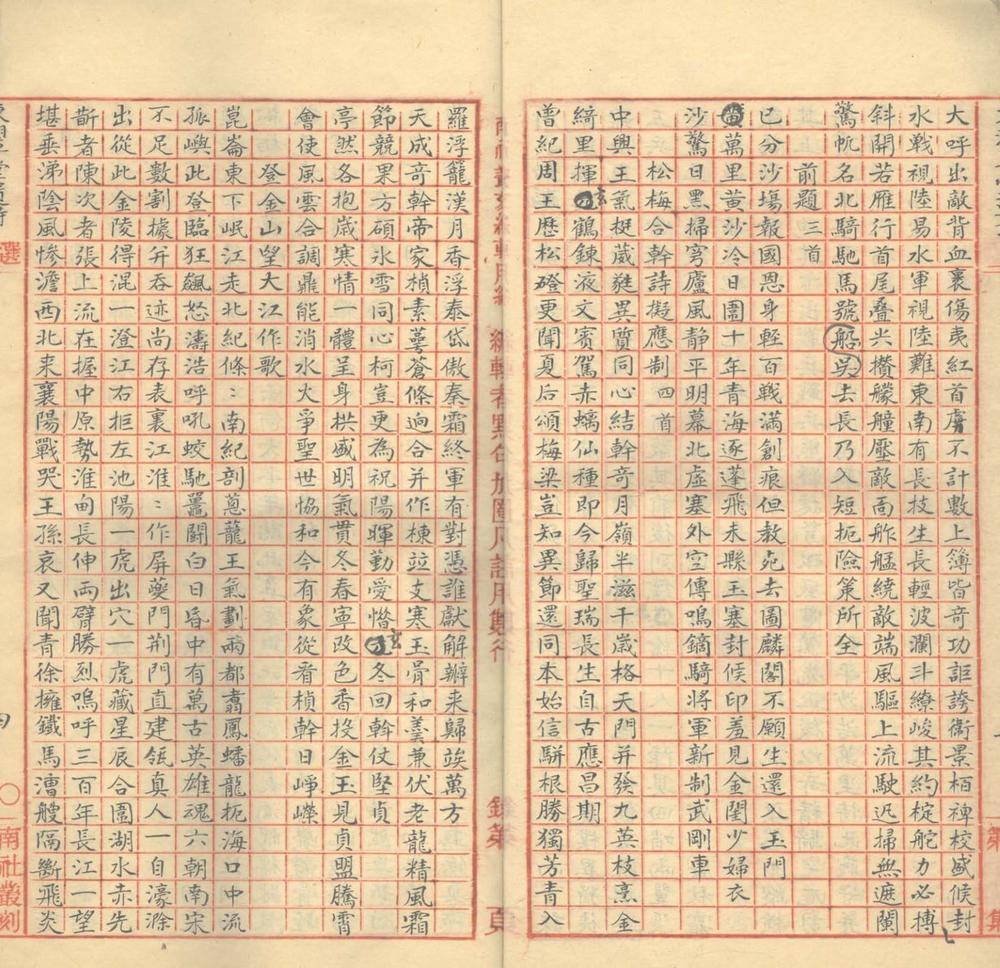 大呼出敵背血裹傷夷紅首虜不計數上簿皆奇功詎誇衛景栢裨校盛候封
水戰視陸易水軍視陸難東南有長技生長輕波瀾斗繚峻其約椗舵力必摶
斜開若雁行首尾疊𠔏攢艨艟壓敵高舴艋繞敵端風驅上流駛迅掃無遮闌
驚帆名北騎馳馬號船吳去長乃入短扼險策所全
前題三首
已分沙場報國恩身輕百戰滿創痕但教死去圖麟閣不願生還入玉門
黄萬里黄沙冷日圍十年青海逐蓬飛未縣玉塞封候印羞見金閨少婦衣
沙驚日黑掃穹廬風靜平明幕北虛塞外空傳鳴鏑騎將軍新制武剛車
松梅合幹詩擬應制四首
中興王氣挺葳蕤異質同心結幹奇月嶺半滋千歲格天門并發九英枝烹金
綺里揮玄鶴鍊液文賓駕赤螭仙種即今歸聖瑞長生自古應昌期
曾紀周王歷松磴更聞夏后頌梅梁豈知異節還同本始信駢根勝獨芳青入
羅浮籠漢月香浮泰岱傲秦霜終軍有對憑誰獻解辮来歸竢萬方
天成奇幹帝家楨素萼蒼條迥合并作棟竝支寒玉骨和羹兼伏老龍精風霜
節競果方碩氷雪同心柯豈更為祝陽暉勤愛惜玄冬回斡仗堅貞
亭然各抱歲寒情一體呈身拱盛明氣貫冬春寧改色香投金玉見貞盟騰霄
會使風雲合調鼎能消水火爭聖世協和今有象從看楨幹日崢嶸
登金山望大江作歌
崑崙東下岷江走北紀條:南紀剖蔥蘢王氣劃兩都翥鳳蟠龍扼海口中流
孤嶼此登臨狂飆怒濤浩呼吼蛟馳鼉鬬白日昏中有萬古英雄魂六朝南宋
不足數割據并吞迹尚存表裏江淮:作屏夔門荆門直建瓴真人一自濠滁
出從此金陵得混一澄江右拒左池陽一虎出穴一虎藏星辰合圍湖水赤先
斮者陳次者張上流在握中原勢淮甸長伸兩臂勝烈嗚呼三百年長江一望
堪垂涕陰風慘澹西北来襄陽戰哭王孫哀又聞青徐擁鐵馬漕艘隔斷飛炎
選
四
南社叢刻
第 集